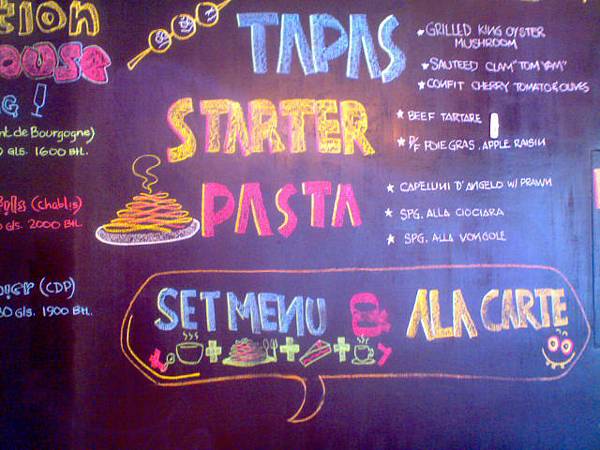 tion
ouse
TAPAS
★ GRILLED KING OYSTER
MUSHROOM
★ SAUTEED CLAM "TOM YAM"
★ CONFIT CHERRY TOMATO & OLIVES
STARTER
★ BEEF TARTARE
★ P/F FOIE GRAS. APPLE RAISIN
PASTA
★ CAPELLINI D'ANGELO W/ PRAWN
★ SPG. ALLA CIOCIARA
★ SPG. ALLA VONGOLE
nt de Bourgogne)
0 GLS. 1600 BTL.
(Chablis)
0 GLS. 2000 BTL
(CDP)
80 GLS. 1900 BTL.
SET MENU
ALA CARTE